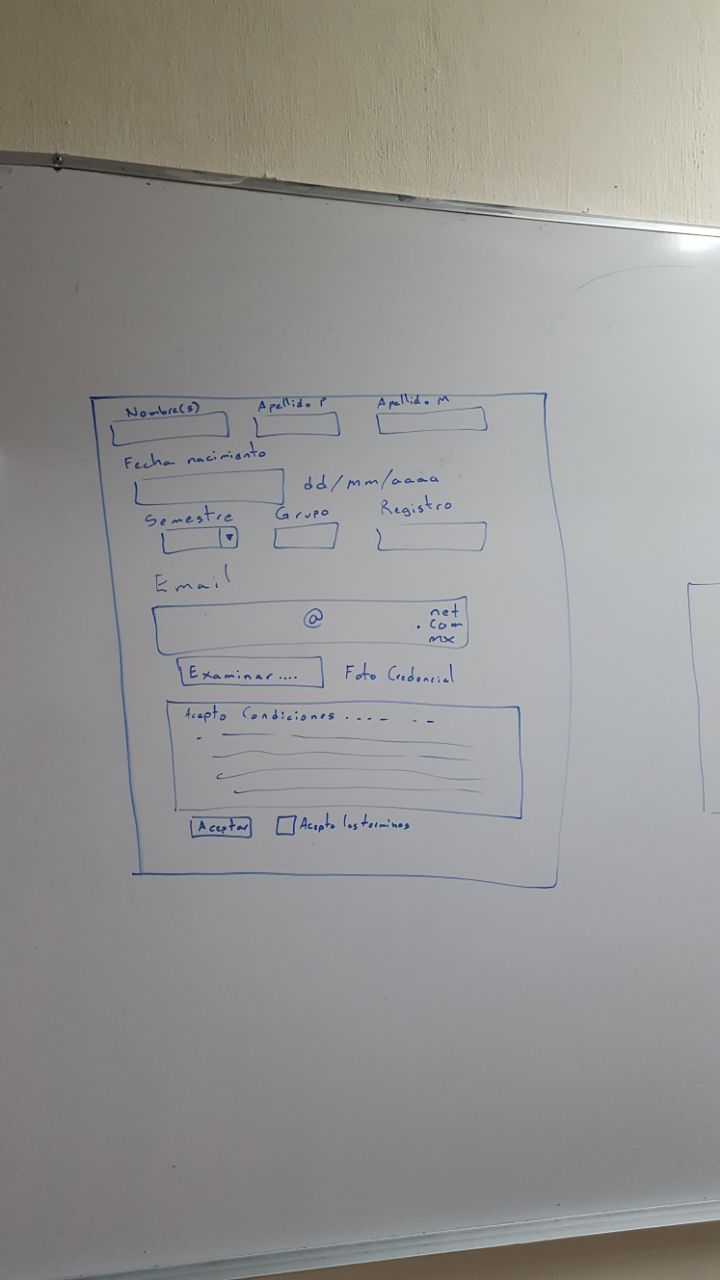 Nombre(s) Apellido P Apellido M
Fecha nacimiento
dd/mm/aaaa
Semestre Grupo Registro
Email
@ .com net mx
Examinar.... Foto Credencial
Acepto Condiciones . . . . - . -
Aceptar Acepto los terminos